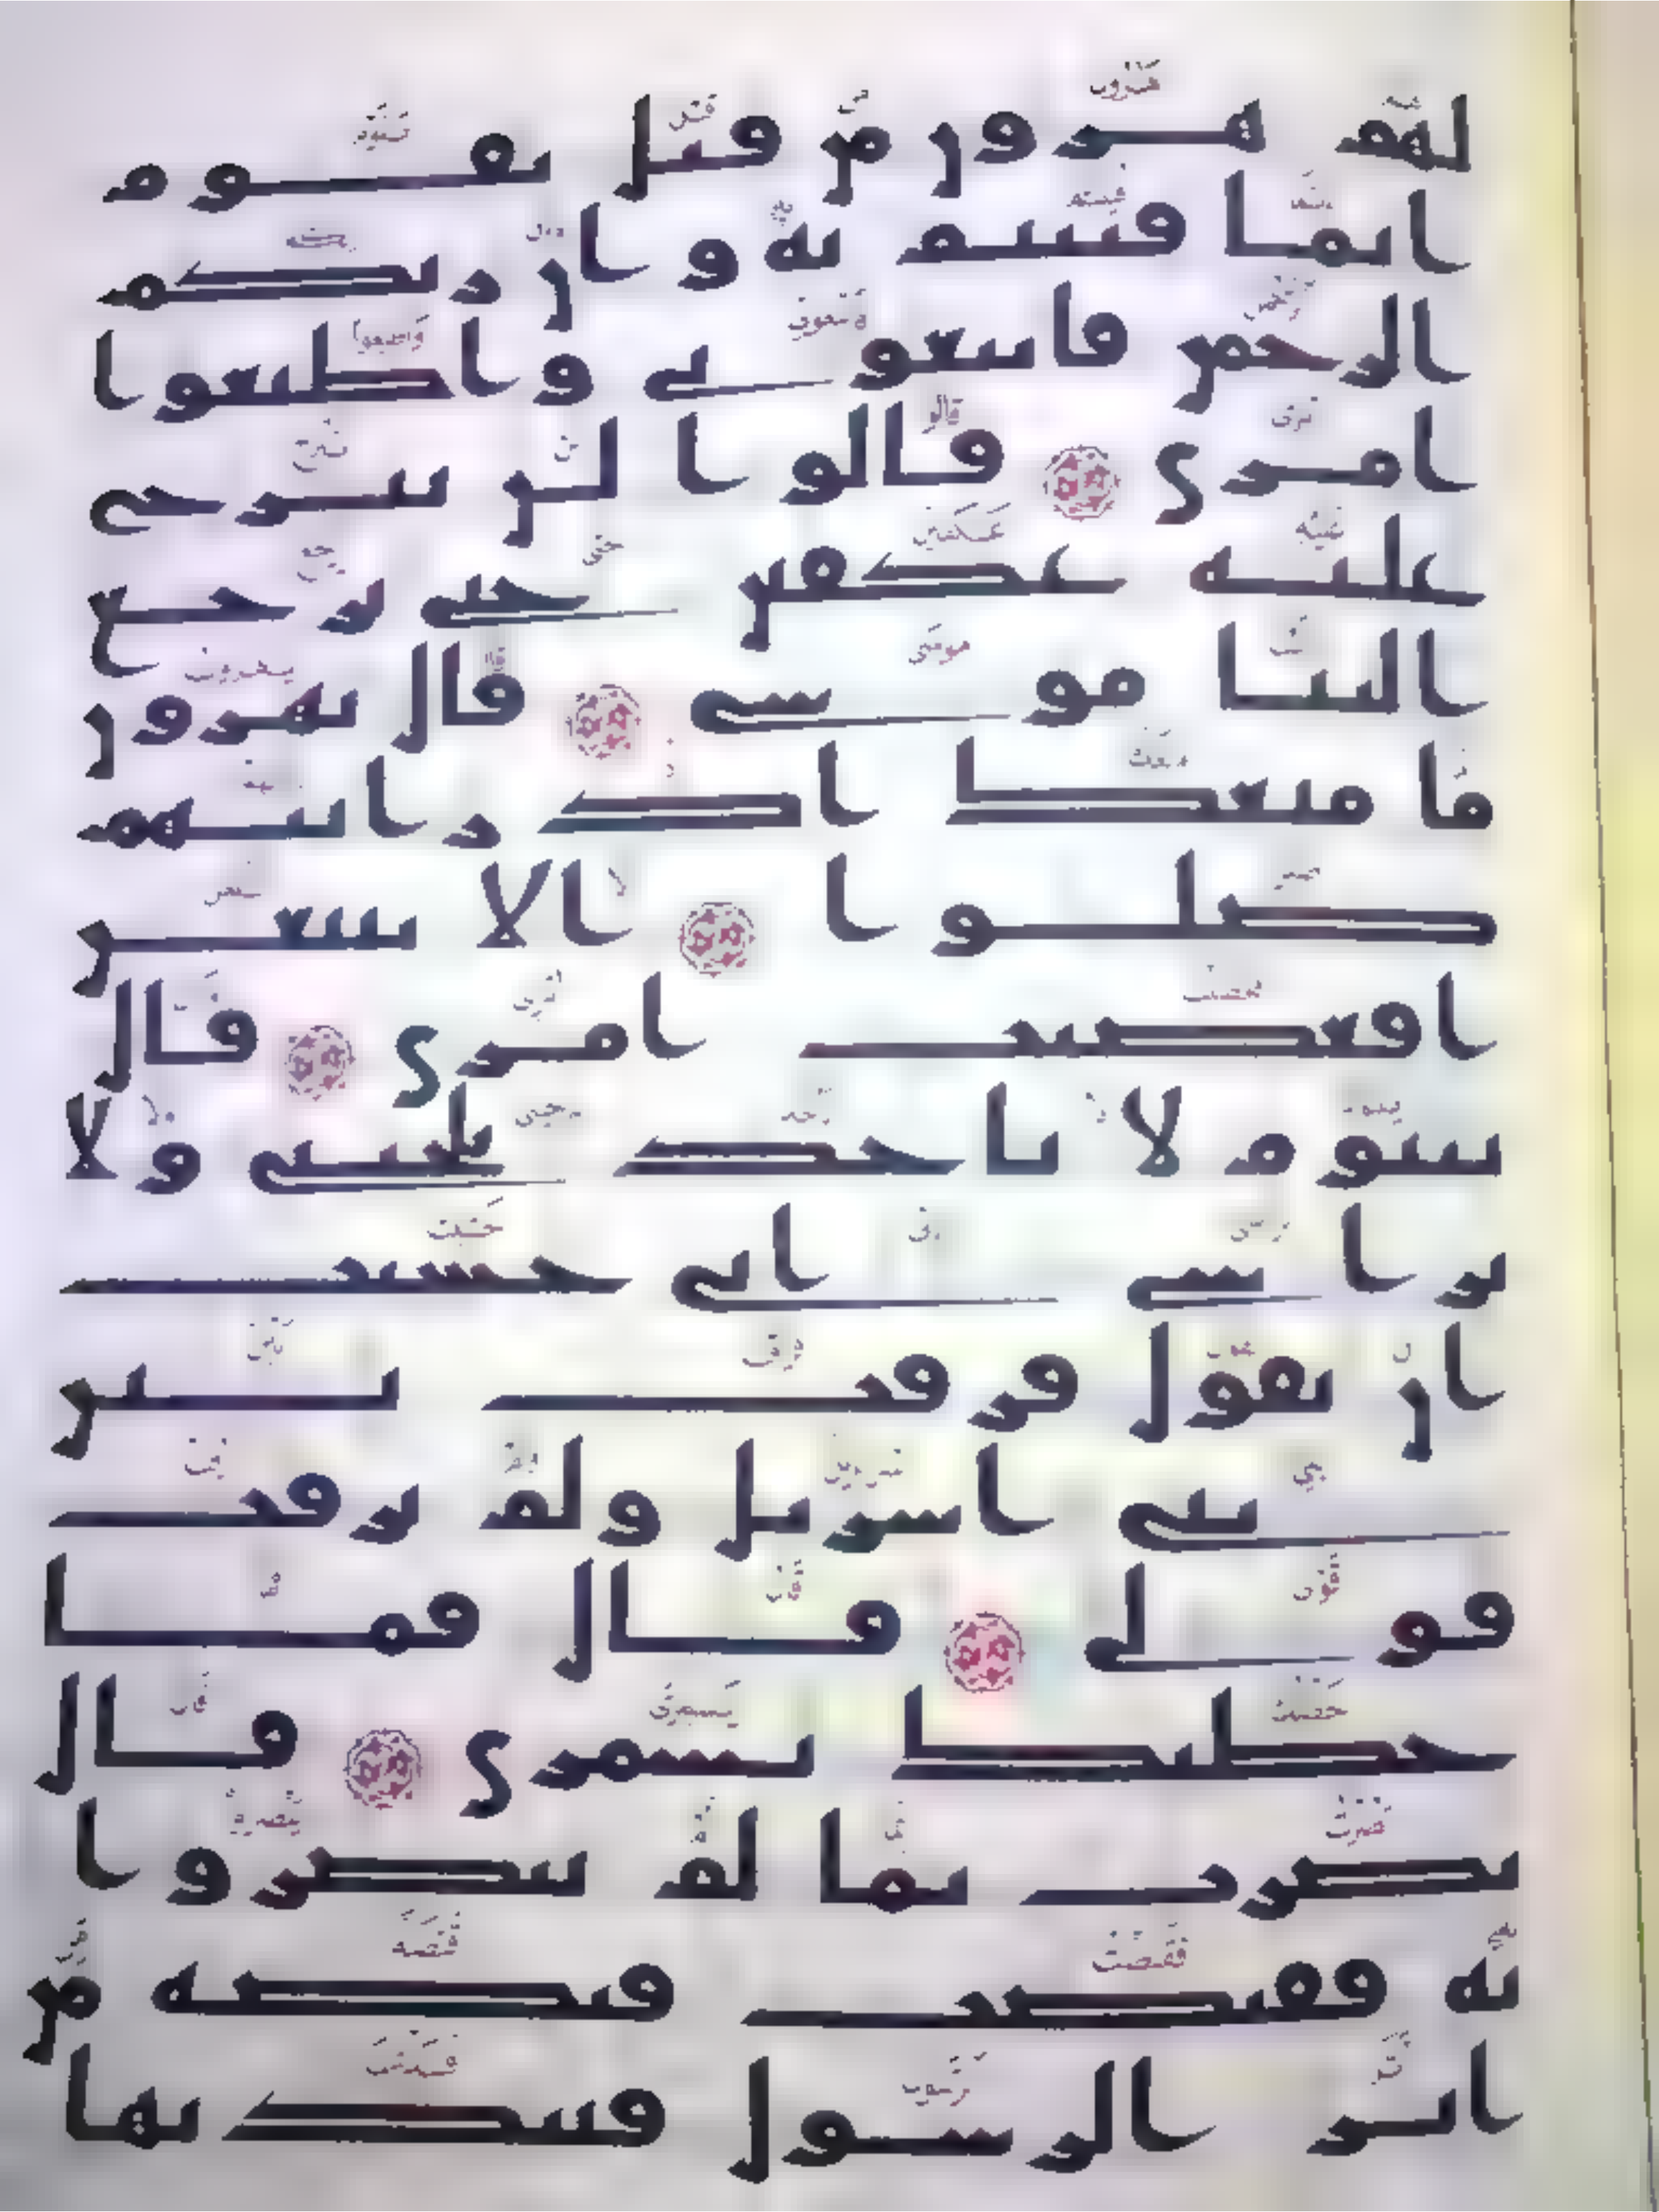 لهم هرون من قبل يقوم
انما فتنتم به وان ربكم
الرحمن فاتبعوني واطيعوا
امري قالوا لن نبرح
عليه عكفين حتى يرجع
الينا موسى قال يهرون
ما منعك اذ رايتهم
ضلوا الا تتبعن
افعصيت امري قال
يبنوم لا تاخذ بلحيتي ولا
براسي اني خشيت
ان تقول فرقت بين
بني اسريل ولم ترقب
قولي قال فما
خطبك يسمري قال
بصرت بما لم يبصروا
به فقبضت قبضه من
اثر الرسول فنبذتها